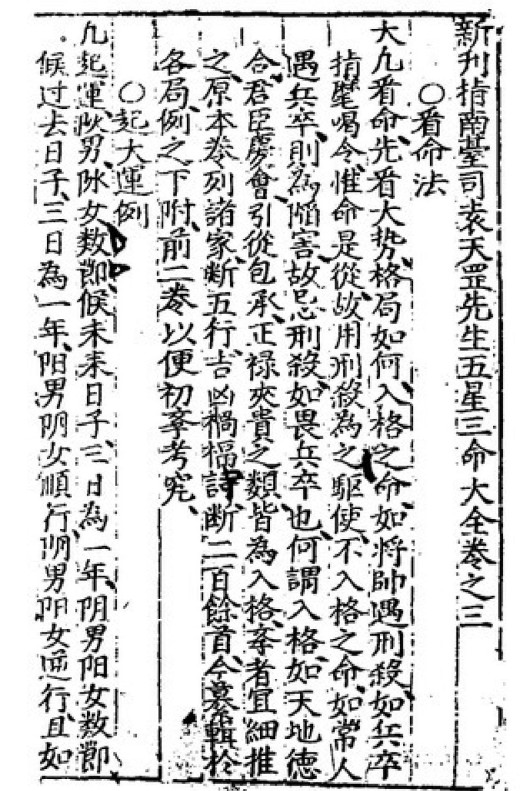 新刊指南臺司袁天罡先生五星三命大全卷之三
○看命法
大凢看命、先看大势、格局如何、入格之命、如將帥遇刑殺、如兵卒
指麾喝令、惟命是從、故用刑殺為之駆使、不入格之命、如常人
遇兵卒、則為陷害、故忌刑殺、如畏兵卒也、何謂入格、如天地德
合、君臣慶會、引從包承、正禄夾貴之類、皆為入格、孝者宜細推
之、原本卷列諸家断五行吉凶禍福詩断二百餘首、今纂輯於
各局例之下、附前二卷、以便初孝考究、
○起大運例
凢起運、阦男阥女、数卽候未来日子、三日為一年、阴男阳女、数卽
候过去日子、三日為一年、阳男阴女順行、阴男阳女逆行、且如